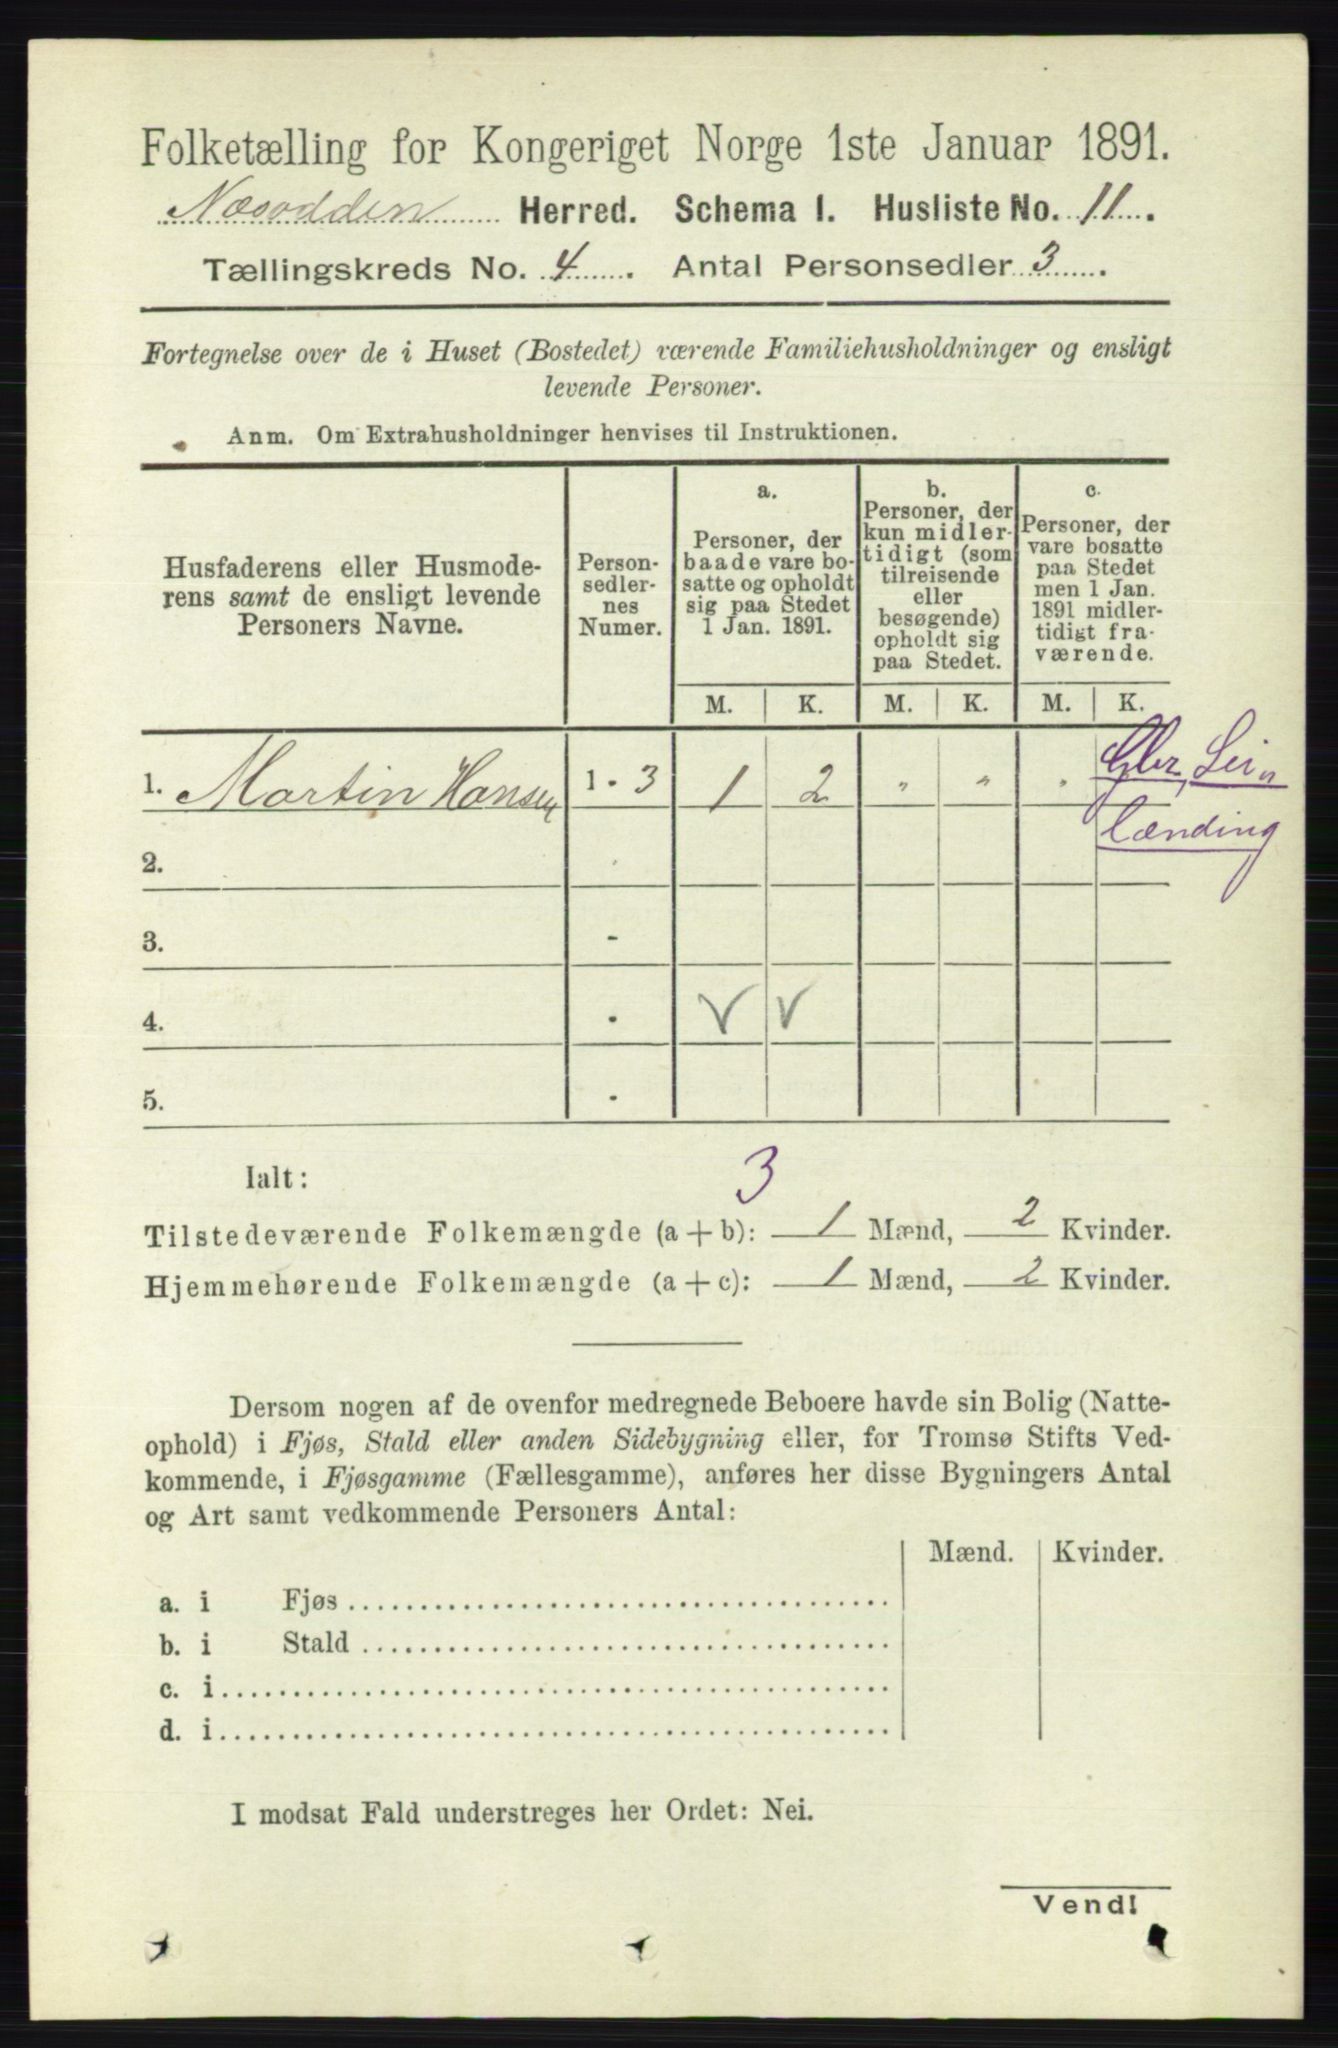 Folketælling for Kongeriget Norge 1ste Januar 1891.
Næsodden Herred. Schema I. Husliste No. 11.
Tællingskreds No. 4. Antal Personsedler 3.
Fortegnelse over de i Huset (Bostedet) værende Familiehusholdninger og ensligt
levende Personer.
Anm. Om Extrahusholdninger henvises til Instruktionen.
Husfaderens eller Husmode-
rens samt de ensligt levende
Personers Navne.
Person-
sedler-
nes
Numer.
a.
Personer, der
baade vare bo-
satte og opholdt
sig paa Stedet
1 Jan. 1891.
b.
Personer, der
kun midler-
tidigt (som
tilreisende
eller
besøgende)
opholdt sig
paa Stedet.
c.
Personer, der
vare bosatte
paa Stedet
men 1 Jan.
1891 midler-
tidigt fra-
værende.
M. K. M. K. M. K.
1. Martin Hansen 1 - 3 1 2 " " "
lænding
2.
3. -
4. - V V
5. -
Ialt: 3
Tilstedeværende Folkemængde (a + b): 1 Mænd, 2 Kvinder.
Hjemmehørende Folkemængde (a + c): 1 Mænd, 2 Kvinder.
Dersom nogen af de ovenfor medregnede Beboere havde sin Bolig (Natte-
ophold) i Fjøs, Stald eller anden Sidebygning eller, for Tromsø Stifts Ved-
kommende, i Fjøsgamme (Fællesgamme), anføres her disse Bygningers Antal
og Art samt vedkommende Personers Antal:
Mænd. Kvinder.
a. i Fjøs
b. i Stald
c. i
d. i
I modsat Fald understreges her Ordet: Nei.
Vend!